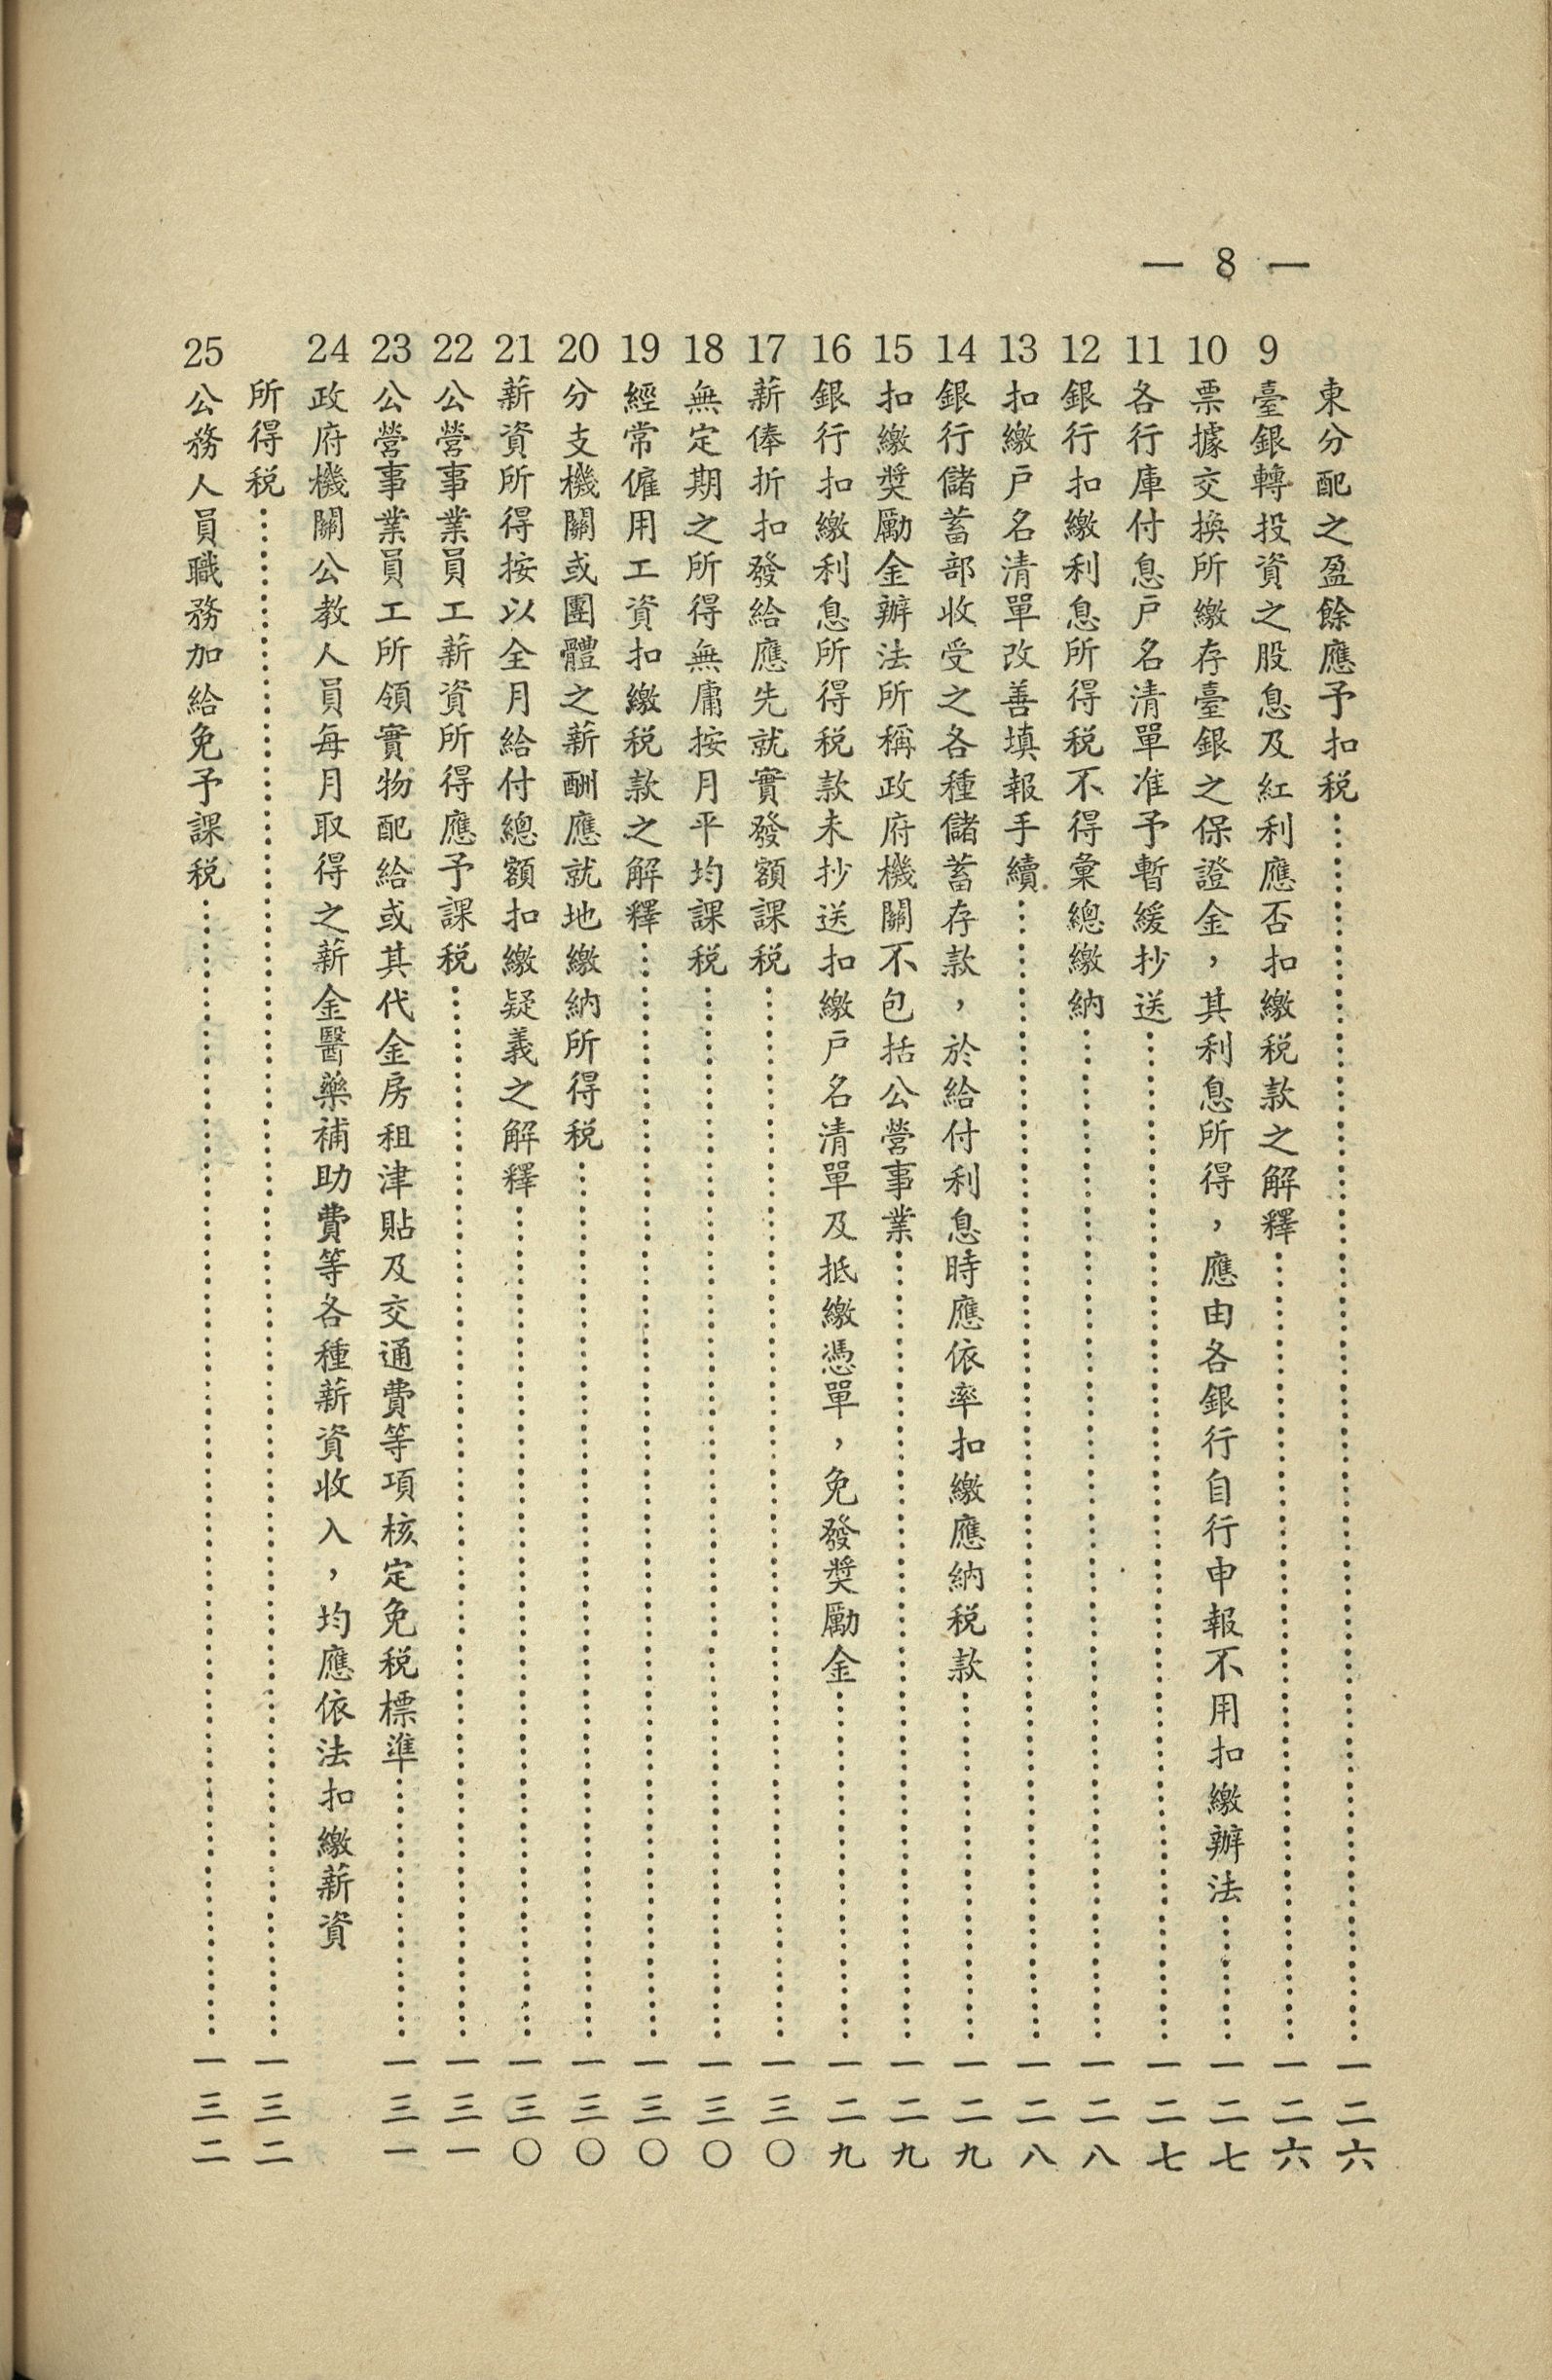 — 8 —
東分配之盈餘應予扣税……一二六
9臺銀轉投資之股息及紅利應否扣繳税款之解釋……一二六
10票據交換所繳存臺銀之保證金，其利息所得，應由各銀行自行申報不用扣繳辦法……一二七
11各行庫付息戶名清單准予暫緩抄送……一二七
12銀行扣繳利息所得税不得彙總繳納……一二八
13扣繳戶名清單改善填報手續……一二八
14銀行儲蓄部收受之各種儲蓄存款，於給付利息時應依率扣繳應納税款……一二九
15扣繳獎勵金辦法所稱政府機關不包括公營事業……一二九
16銀行扣繳利息所得税款未抄送扣繳戶名清單及抵繳憑單，免發獎勵金……一二九
17薪俸折扣發給應先就實發額課税……一三〇
18無定期之所得無庸按月平均課税……一三〇
19經常僱用工資扣繳税款之解釋……一三〇
20分支機關或團體之薪酬應就地繳納所得税……一三〇
21薪資所得按以全月給付總額扣繳疑義之解釋……一三〇
22公營事業員工薪資所得應予課税……一三一
23公營事業員工所領實物配給或其代金房租津貼及交通費等項核定免税標準……一三一
24政府機關公教人員每月取得之薪金醫藥補助費等各種薪資收入，均應依法扣繳薪資
所得税……一三二
25公務人員職務加給免予課税……一三二